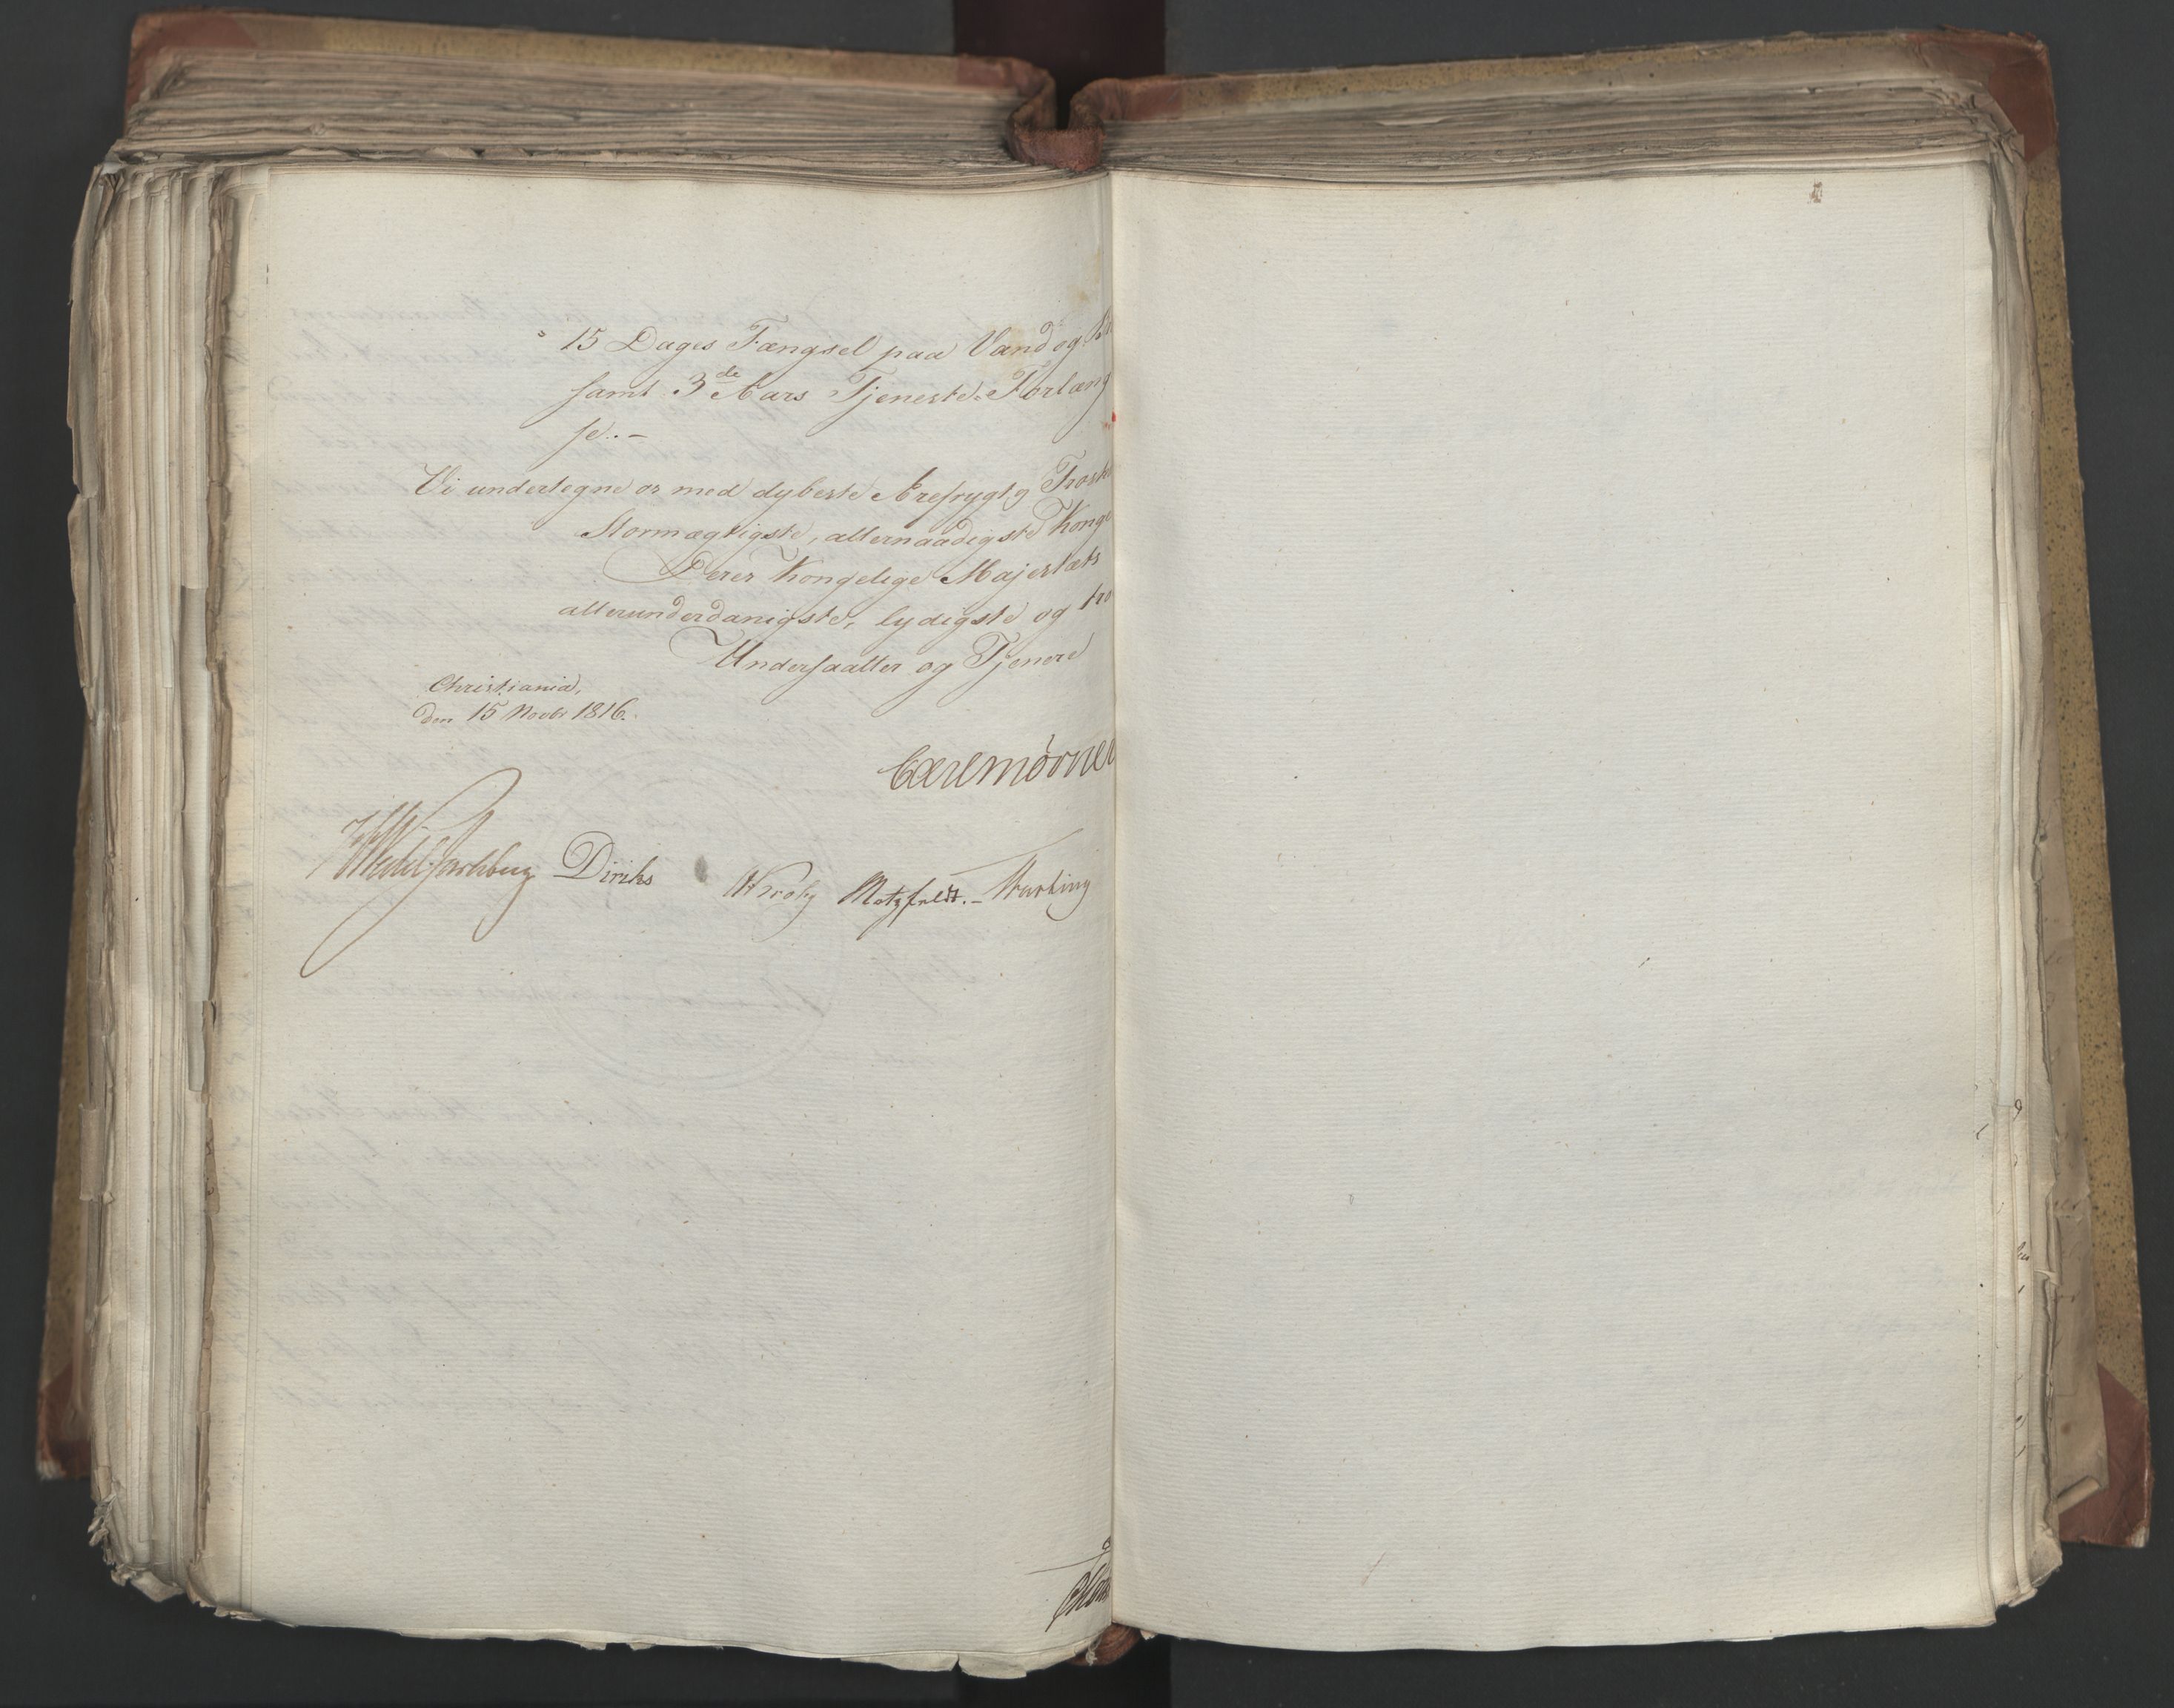 15 Dages Fængsel paa Vand og
samt 3de Aars Tjeneste-Forlæng
se.-
Vi undertegne os med dybeste Ærefrygt og Trosk
Stormægtigste, allernaadigste Konge
Deres Kongelige Majestæts
allerunderdanigste, lydigste og tro
Undersaatter og Tjenere
Christiania,
den 15 Novbr 1816.
Carl Mörner
HWedel Jarlsberg Diriks Krohg Motzfeldt.- Harbing